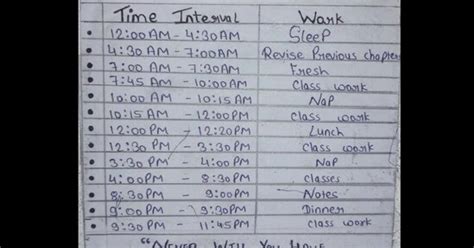 Time Interval Work
• 12:00 AM - 4:30AM Sleep
• 4:30 AM - 7:00AM Revise Previous chapter
• 7:00 AM - 7:30AM Fresh
• 7:45 AM - 10:00AM Class work
• 10:00 AM - 10:15 AM Nap
• 10:15 AM - 12:00PM Class work
• 12:00 PM - 12:20PM Lunch
• 12:30 PM - 3:30PM Class work
• 3:30 PM - 4:00PM Nap
• 4:00PM - 8:30PM Classes
• 8:30PM - 9:00PM Notes
• 9:00 PM - 9:30PM Dinner
• 9:30 PM - 11:45PM Class work
"Never Will You Have